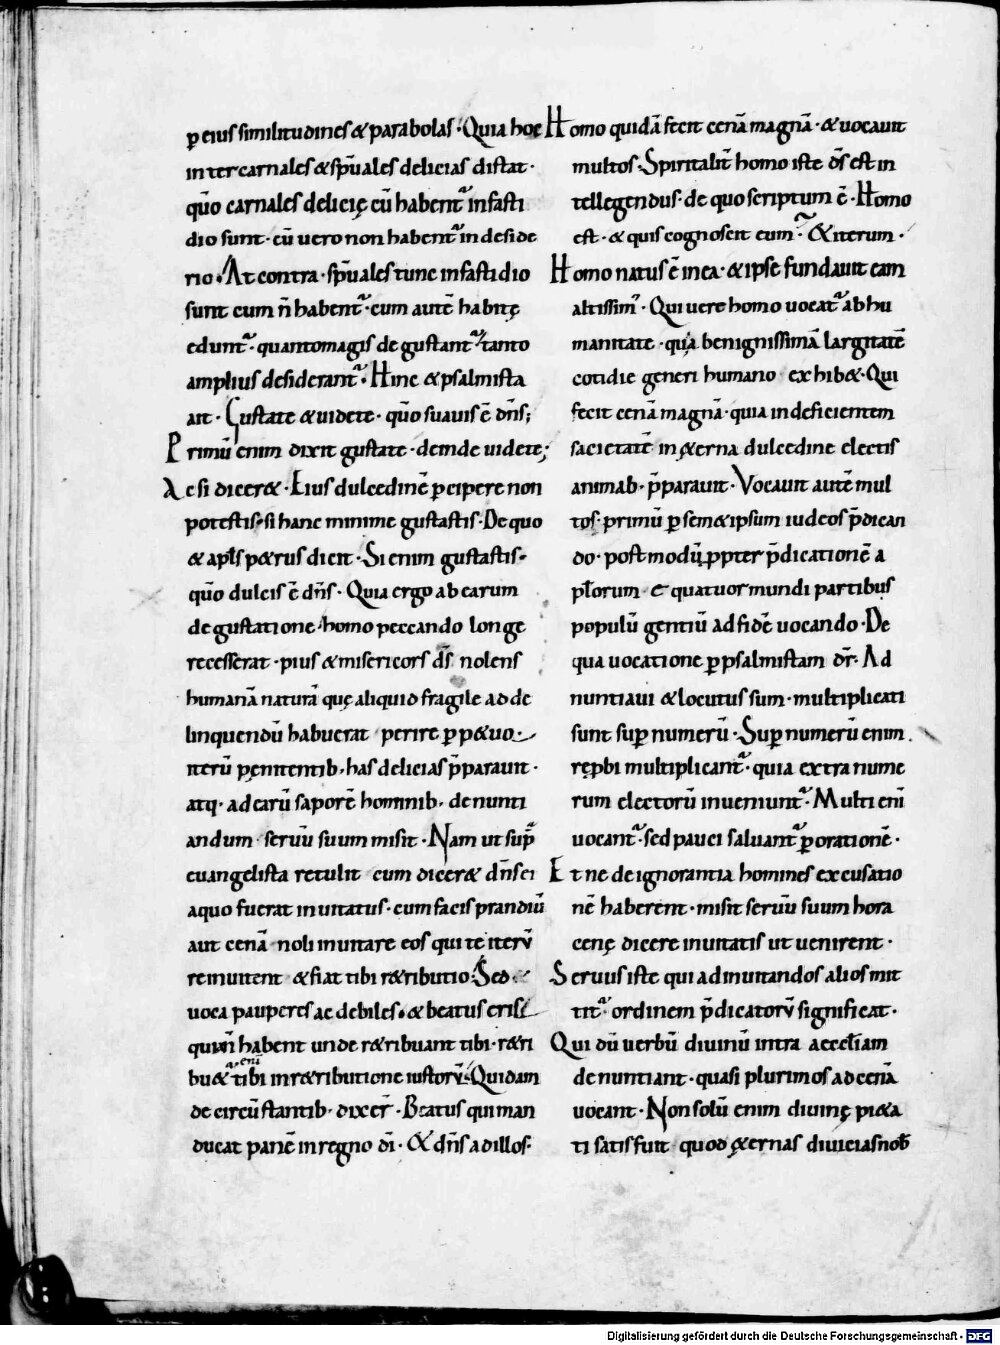 p̲ eius similitudines & parabolas · Quia hoc
inter carnales & sp̄uales delicias distat ·
quō carnales delicię cū habent᷒ in fasti
dio sunt · cū uero non habent᷒ in deside
rio · At contra · sp̄uales tunc in fastidio
sunt cum n̄ habent᷒ · cum autē habitę
edunt᷒ · quantomagis degustant᷒ tanto
amplius desiderant᷒ · Hinc & psalmista
ait · Gustate & uidete · quō suauis ē dn̄s;
Primū enim dixit gustate · deinde uidete;
Ac si dicer& · Eius dulcedinē p̲cipere non
potestis · si hanc minime gustastis · De quo
& apl̄s p&rus dicit · Si enim gustastis ·
quō dulcis ē dn̄s · Quia ergo ab earum
degustatione homo peccando longe
recesserat · pius & misericors d̄s nolens
humanā naturā quę aliquid fragile ad de
linquendū habuerat perire p̲p&uo ·
iterū penitentib; has delicias p̄parauit ·
atq; ad earū saporē hominib; denunti
andum seruū suum misit · Nam ut sup̄
euangelista retulit cum dicer& dn̄s ei
a quo fuerat inuitatus · cum facis prandiū
aut cenā noli inuitare eos qui te iterū
reinuitent & fiat tibi r&ributio · Sed
uoca pauperes ac debiles · & beatus eris
qui n̄ habent unde r&ribuant tibi · r&ri
bu&᷒ enī tibi in r&ributione iustorū · Quidam
de circūstantib; dixer̄ · Beatus qui man
ducat panē in regno dī · & dn̄s ad illos ·
Homo quidā fecit cenā magnā · & uocauit
multos · Spiritalit̄ homo iste d̄s est in
tellegendus · de quo scriptum ē · Homo
est · & quis cognoscit eum · & iterum ·
Homo natus ē in ea · & ipse fundauit eam
altissim᷒ · Qui uere homo uocat᷒ ab hu
manitate · quia benignissimā largitatē
cotidie generi humano exhib& · Qui
fecit cenā magnā · quia indeficientem
sacietatē in ęterna dulcedine electis
animab; p̄parauit · Vocauit autē mul
tos · primū p̲ sem&ipsum iudeos p̄dican
do · postmodū ꝓpter p̄dicationē a
pl̄orum e quatuor mundi partibus
populū gentiū ad fidē uocando · De
qua uocatione p̲ psalmistam dr̄ · Ad
nuntiaui & locutus sum · multiplicati
sunt sup̲ numerū · Sup̲ numerū enim
rep̲bi multiplicant᷒ · quia extra nume
rum electorū inueniunt᷒ · Multi enī
uocant᷒ · sed pauci saluant᷒ p̲ orationē ·
Et ne de ignorantia homines excusatio
nē haberent · misit seruū suum hora
cenę dicere inuitatis ut uenirent ·
Seruus iste qui ad inuitandos alios mit
tit᷒ · ordinem p̄dicatorū significat ·
Qui dū uerbū diuinū intra accl̄iam
denuntiant · quasi plurimos ad cenā
uocant · Non solū enim diuinę pi&a
ti satis fuit quod ęternas diuicias nob̄